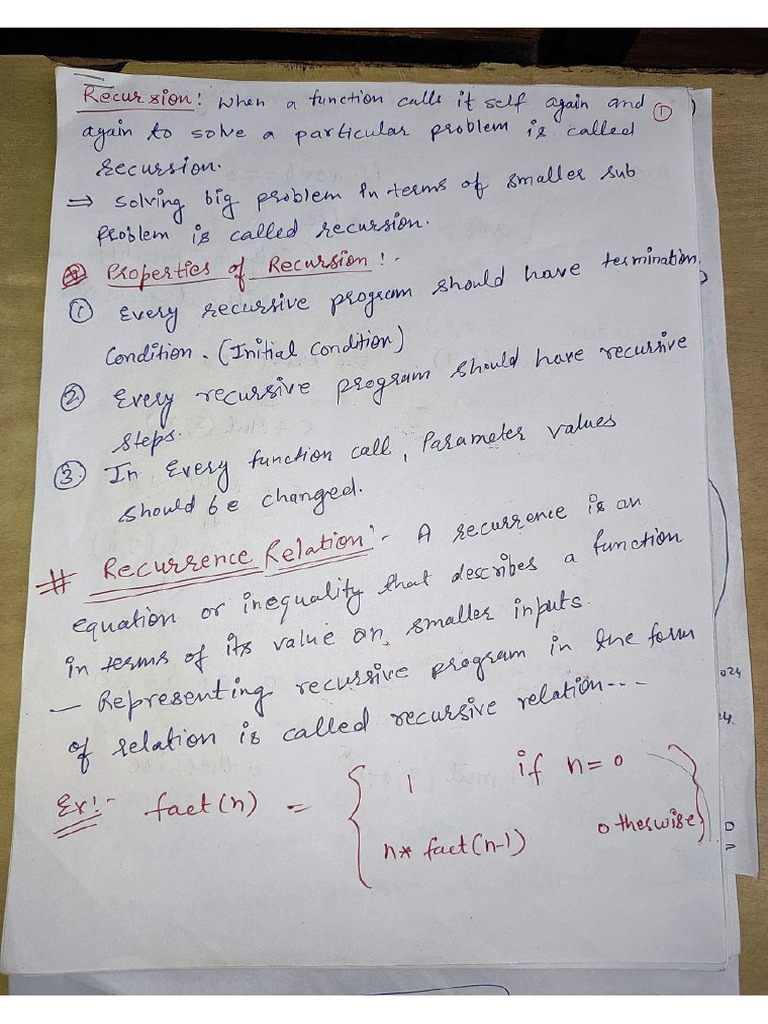 Recursion: When a function calls it self again and ①
again to solve a particular problem is called
recursion.
⇒ Solving big problem in terms of smaller sub
Problem is called recursion.
⊛ Properties of Recursion:-
① Every recursive program should have termination
Condition. (Initial condition)
② Every recursive program should have recursive
steps.
③ In Every function call, Parameter values
should be changed.
# Recurrence Relation:- A recurrence is an
equation or inequality that describes a function
in terms of its value on smaller inputs.
- Representing recursive program in the form
of relation is called recursive relation---
Ex:- fact(n) = { 1 if n=0
n* fact(n-1) otherwise }
024